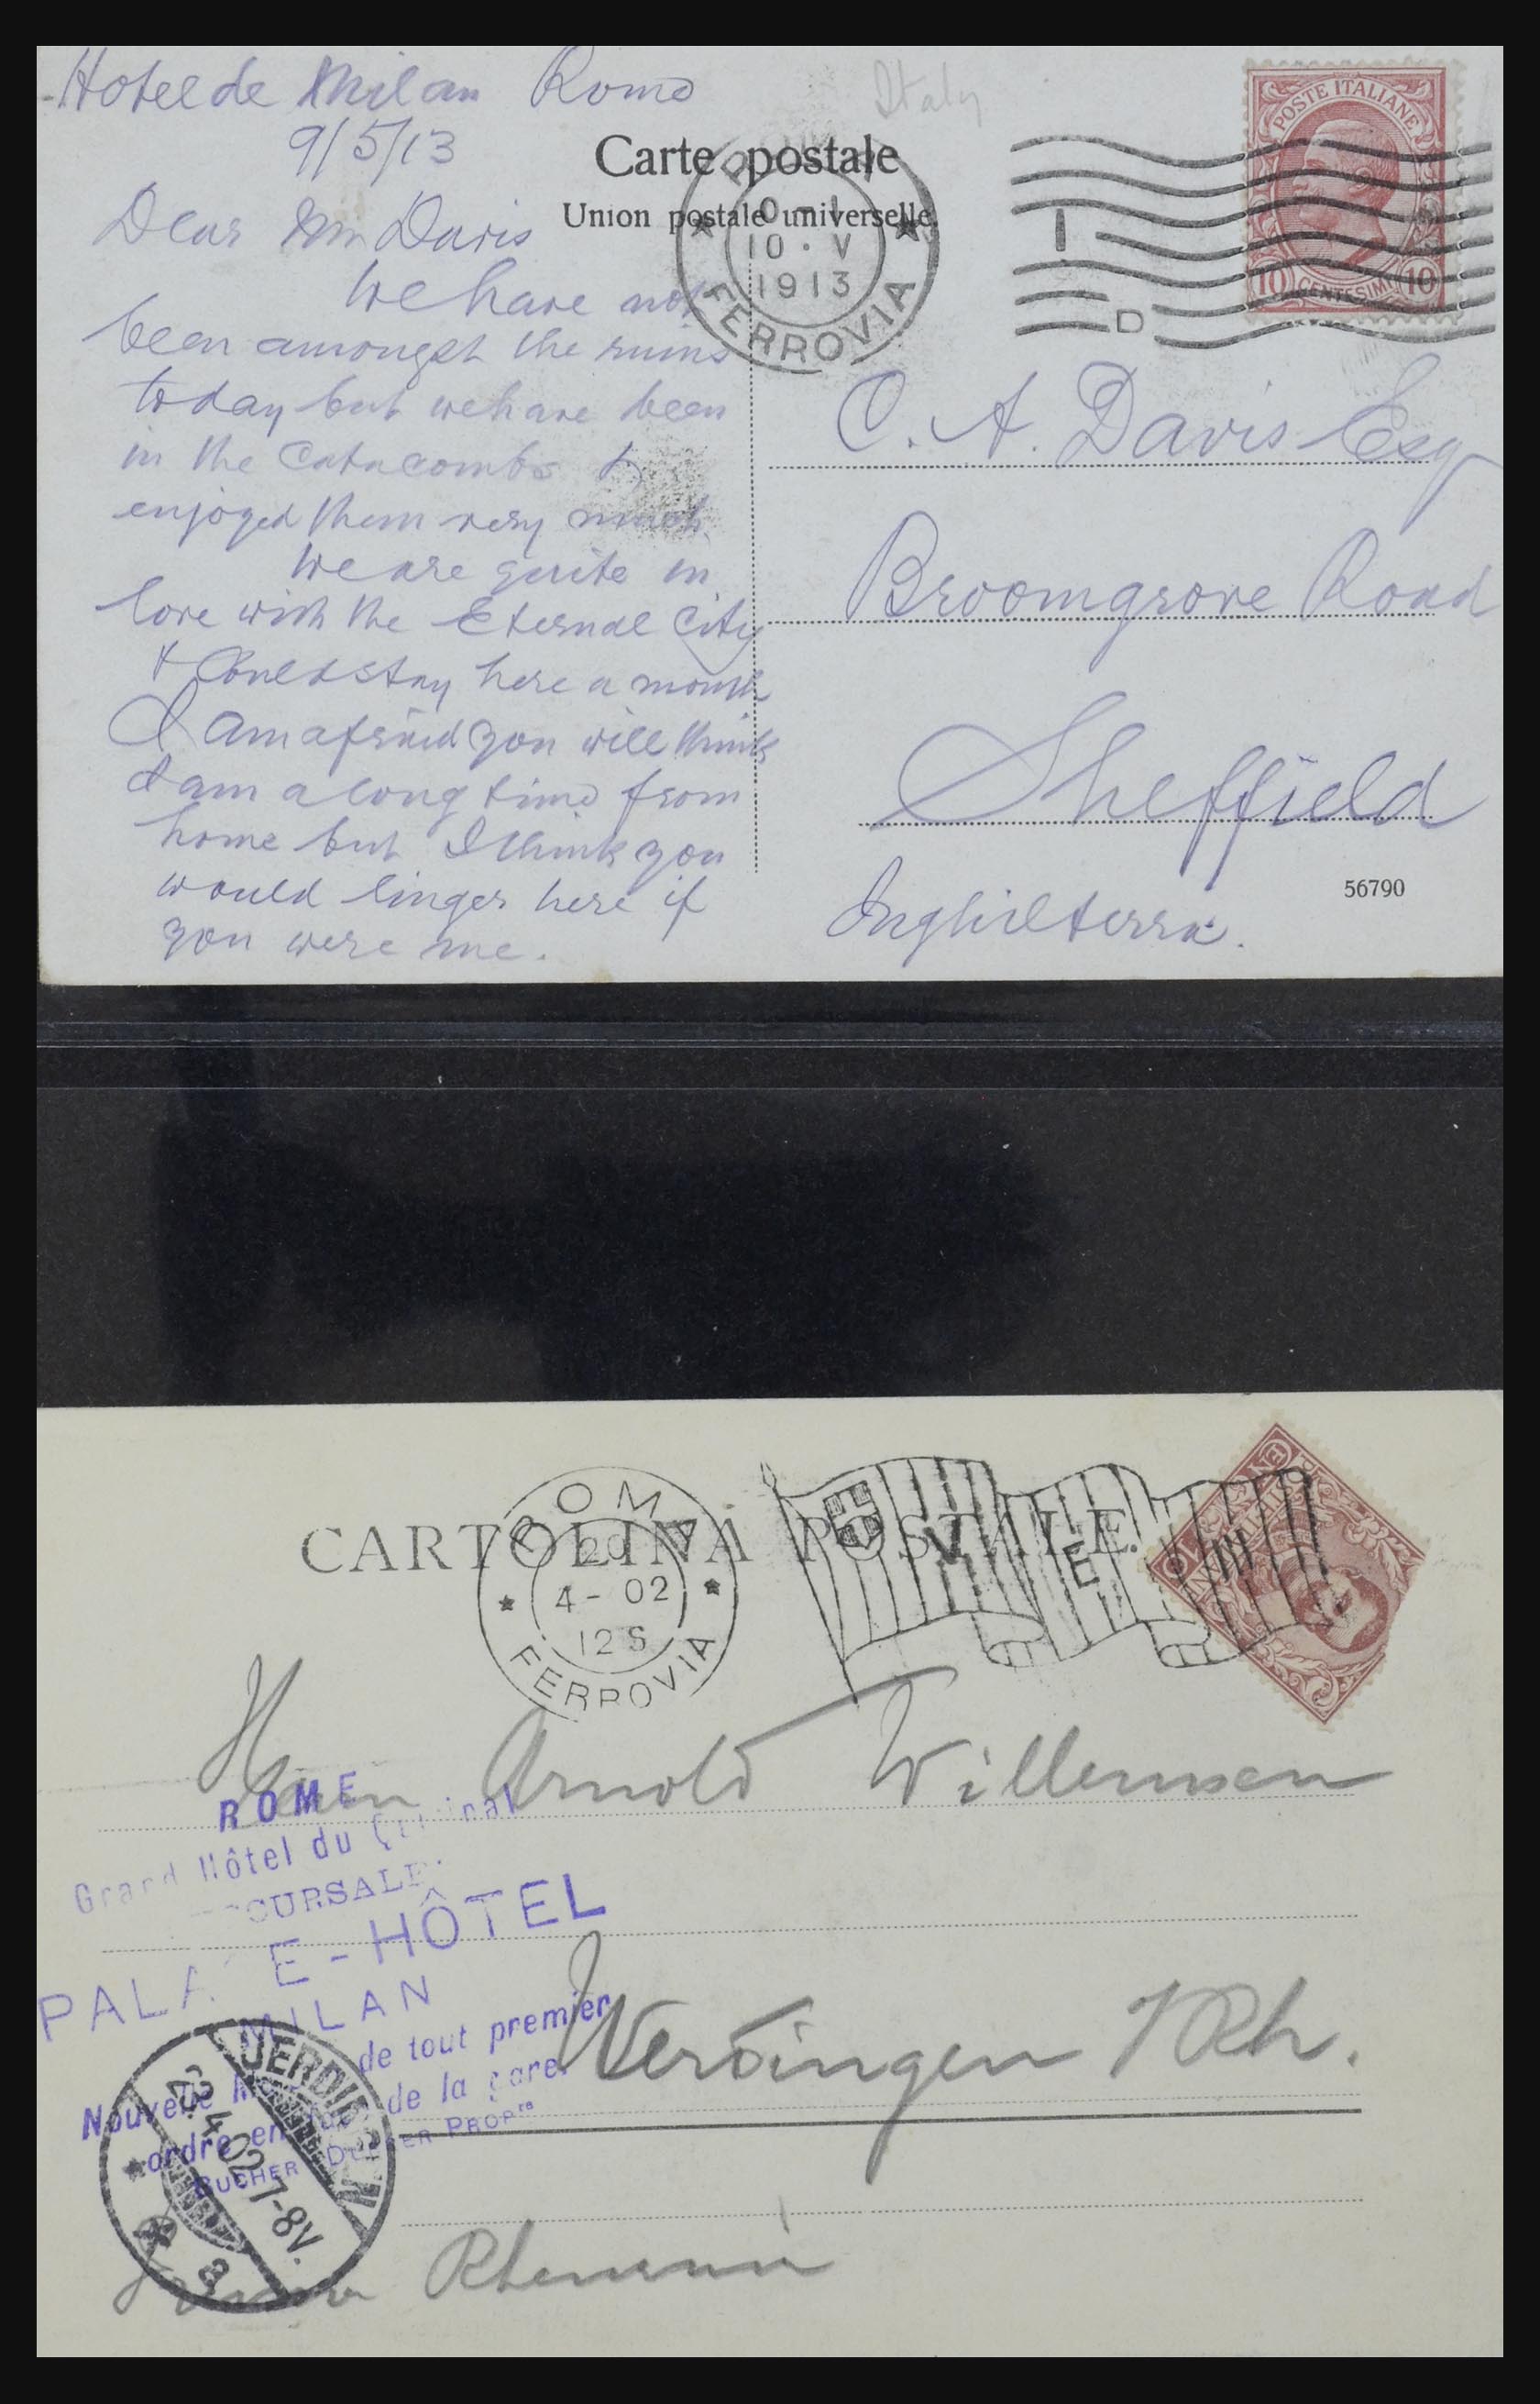 Hotel de Milan Rome
9/5/13
Dear Mr Davis
We have not
been amongst the ruins
today but we have been
in the Catacombs &
enjoyed them very much.
We are quite in
love with the Eternal City
& could stay here a month
I am afraid you will think
I am a long time from
home but I think you
would linger here if
you were me.
Italy
Carte postale
Union postale universelle.
10 · V
1913
FERROVIA
I
D
POSTE ITALIANE
10 CENTESIMI 10
C. A. Davis Esq
Broomgrove Road
Sheffield
Inghilterra.
56790
CARTOLINA POSTALE.
ROMA
20
4 - 02
12 S
FERROVIA
V E III
Herrn Arnold Willemsen
ROME
Grand Hôtel du Quirinal
SUCCURSALE
PALACE-HÔTEL
MILAN
Nouvelle de tout premier
ordre en de la gare.
BUCHER PROPre
UERDINGEN
22.4.02.7-8V.
* a
Uerdingen / Rh.